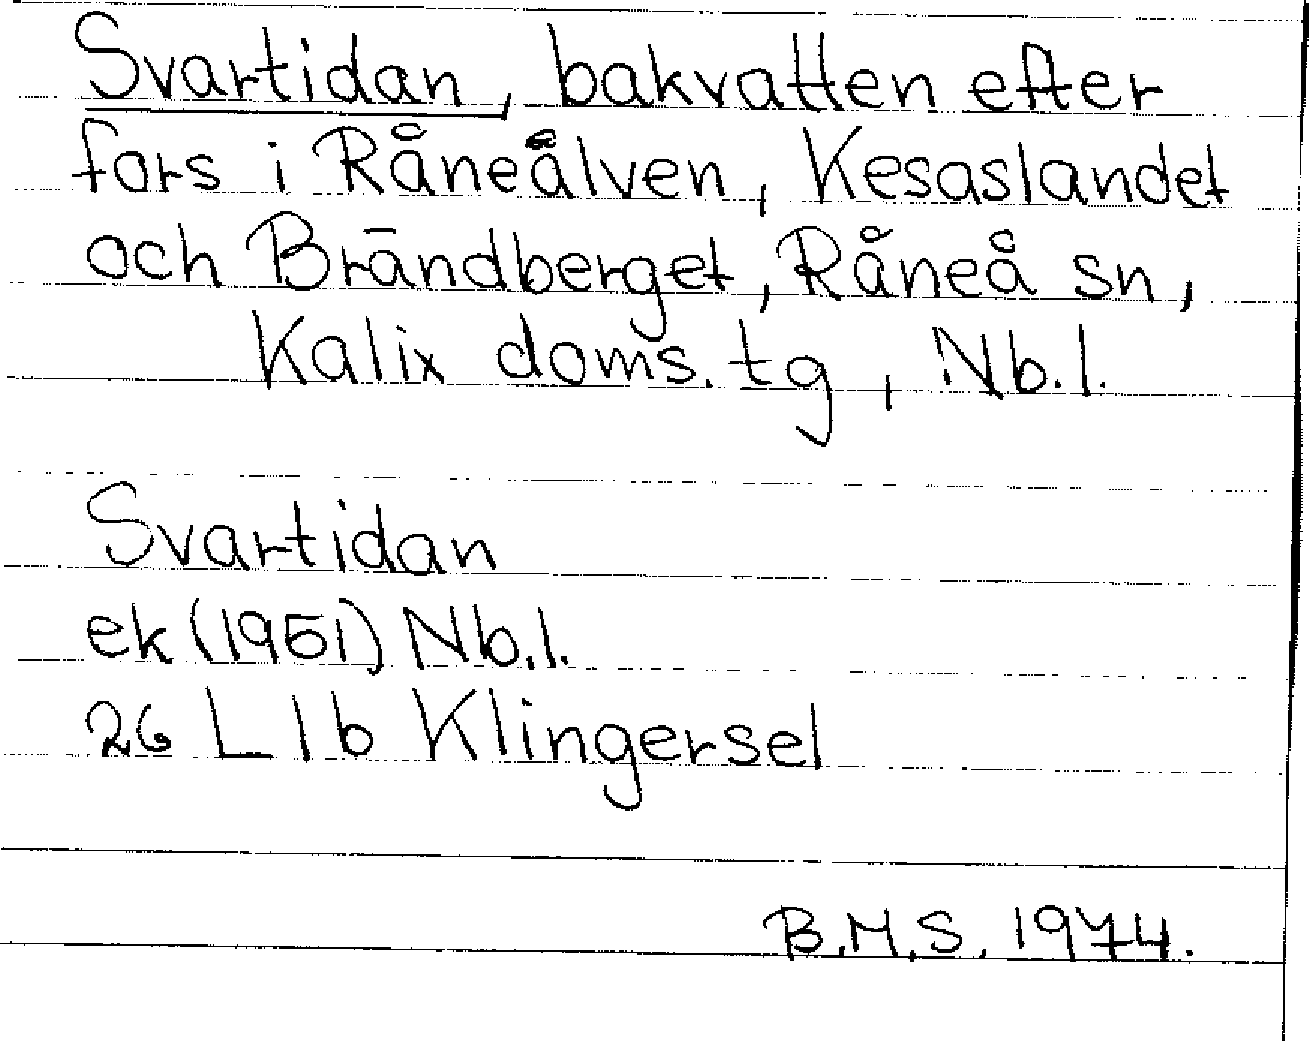 Svartidan, bakvatten efter
fors i Råneälven, Kesaslandet
och Brändberget, Råneå sn,
Kalix doms. tg, Nb. l.
Svartidan
ek (1961) Nb. l.
26 L 1 b Klingersel
B.M.S. 1974.